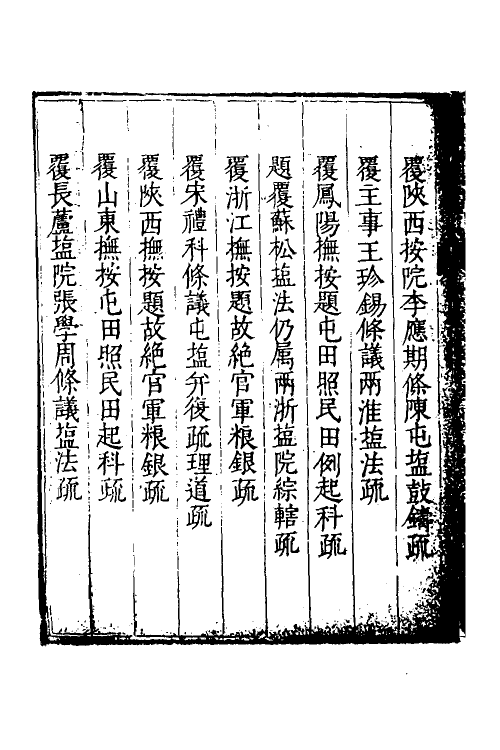 覆陝西按院李應期條陳屯塩鼓鑄疏
覆主事王珍錫條議兩淮塩法疏
覆鳳陽撫按題屯田照民田例起科疏
題覆蘇松塩法仍属兩浙塩院綜轄疏
覆浙江撫按題故絶官軍粮銀疏
覆宋禮科條議屯塩并復疏理道疏
覆陝西撫按題故絶官軍粮銀疏
覆山東撫按屯田照民田起科疏
覆長蘆塩院張學周條議塩法疏